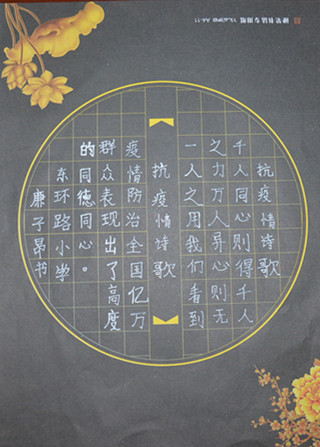 抗疫情诗歌
千人同心则得千人
之力万人异心则无
一人之用我们看到
抗疫情诗歌
疫情防治全国亿万
群众表现出了高度
的同德同心。
东环路小学
廉子昂书